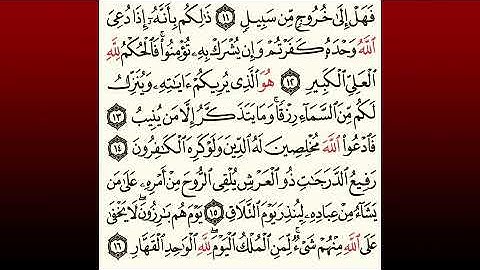 فَهَلْ إِلَىٰ خُرُوجٍ مِّن سَبِيلٍ ١١ ذَٰلِكُم بِأَنَّهُۥٓ إِذَا دُعِىَ
ٱللَّهُ وَحْدَهُۥ كَفَرْتُمْ وَإِن يُشْرَكْ بِهِۦ تُؤْمِنُوا۟ فَٱلْحُكْمُ لِلَّهِ
ٱلْعَلِىِّ ٱلْكَبِيرِ ١٢ هُوَ ٱلَّذِى يُرِيكُمْ ءَايَـٰتِهِۦ وَيُنَزِّلُ
لَكُم مِّنَ ٱلسَّمَآءِ رِزْقًا وَمَا يَتَذَكَّرُ إِلَّا مَن يُنِيبُ ١٣
فَٱدْعُوا۟ ٱللَّهَ مُخْلِصِينَ لَهُ ٱلدِّينَ وَلَوْ كَرِهَ ٱلْكَـٰفِرُونَ ١٤
رَفِيعُ ٱلدَّرَجَـٰتِ ذُو ٱلْعَرْشِ يُلْقِى ٱلرُّوحَ مِنْ أَمْرِهِۦ عَلَىٰ مَن
يَشَآءُ مِنْ عِبَادِهِۦ لِيُنذِرَ يَوْمَ ٱلتَّلَاقِ ١٥ يَوْمَ هُم بَـٰرِزُونَ ۖ لَا يَخْفَىٰ
عَلَى ٱللَّهِ مِنْهُمْ شَىْءٌ ۚ لِّمَنِ ٱلْمُلْكُ ٱلْيَوْمَ ۖ لِلَّهِ ٱلْوَٰحِدِ ٱلْقَهَّارِ ١٦